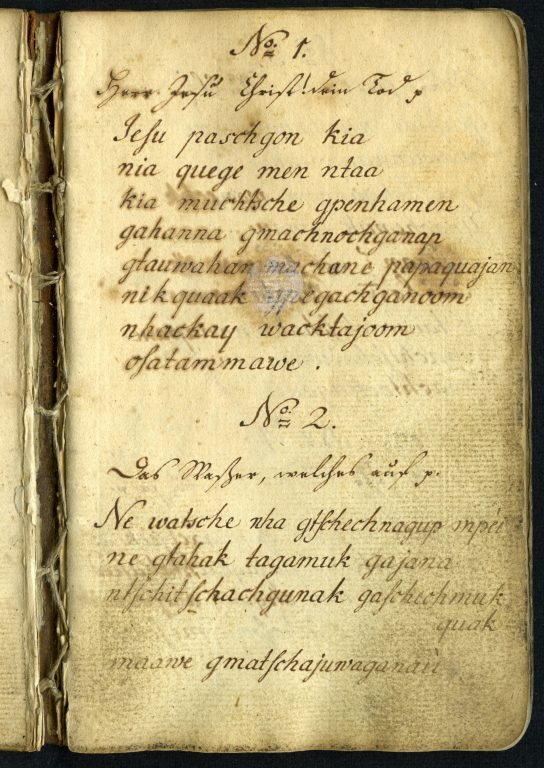 No: 1.
Herr Jesu Christ! dein Tod p
Jesu paschgon kia
nia quege men ntaa
kia muchtsche gpenhamen
gahanna gmachnochganap
gtauwahan machane papaquajan
nikquaak gachganoom
nhackay wacktajoom
osatammawe.
No: 2.
Das Waßer, welches auf p.
Ne watsche nha gtschechnagup mpéi
ne gtahak tagamuk gajana
ntschitschachgunak gaschechmuk
quak
maawe gmatschajuwaganau